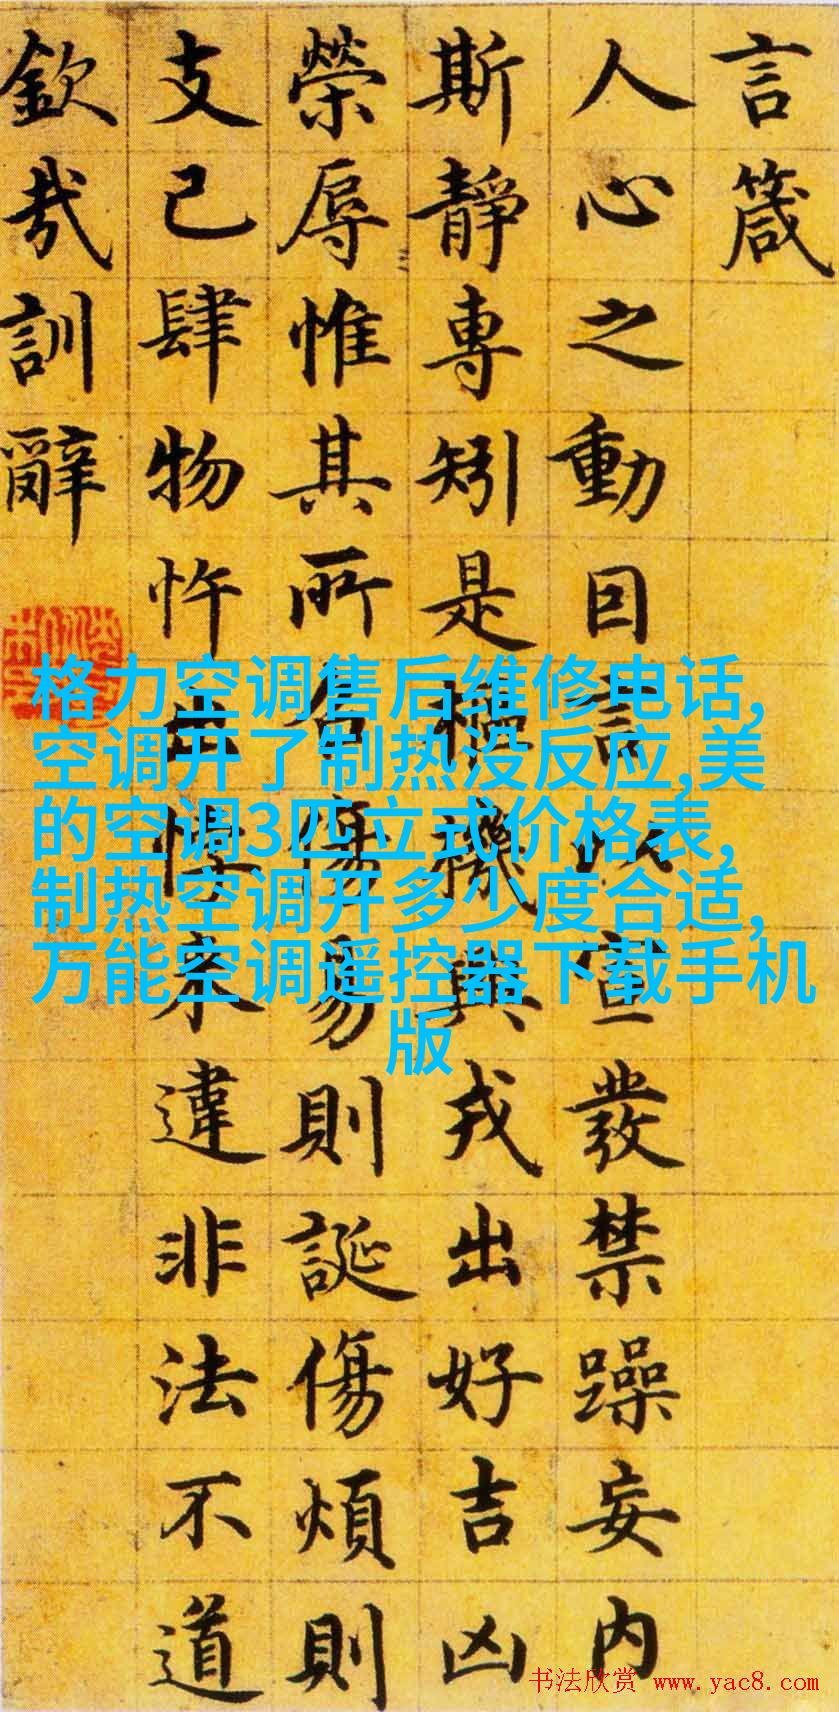 言箴
人心之動因言以宣發禁躁妄內
斯靜專矧是樞機興戎出好吉凶
榮辱惟其所召傷易則誕傷煩則
支己肆物忤出悖來違非法不道
欽哉訓辭
格力空调售后维修电话,
空调开了制热没反应,美
的空调3匹立式价格表,
制热空调开多少度合适,
万能空调遥控器下载手机
版
书法欣赏 www.yac8.com